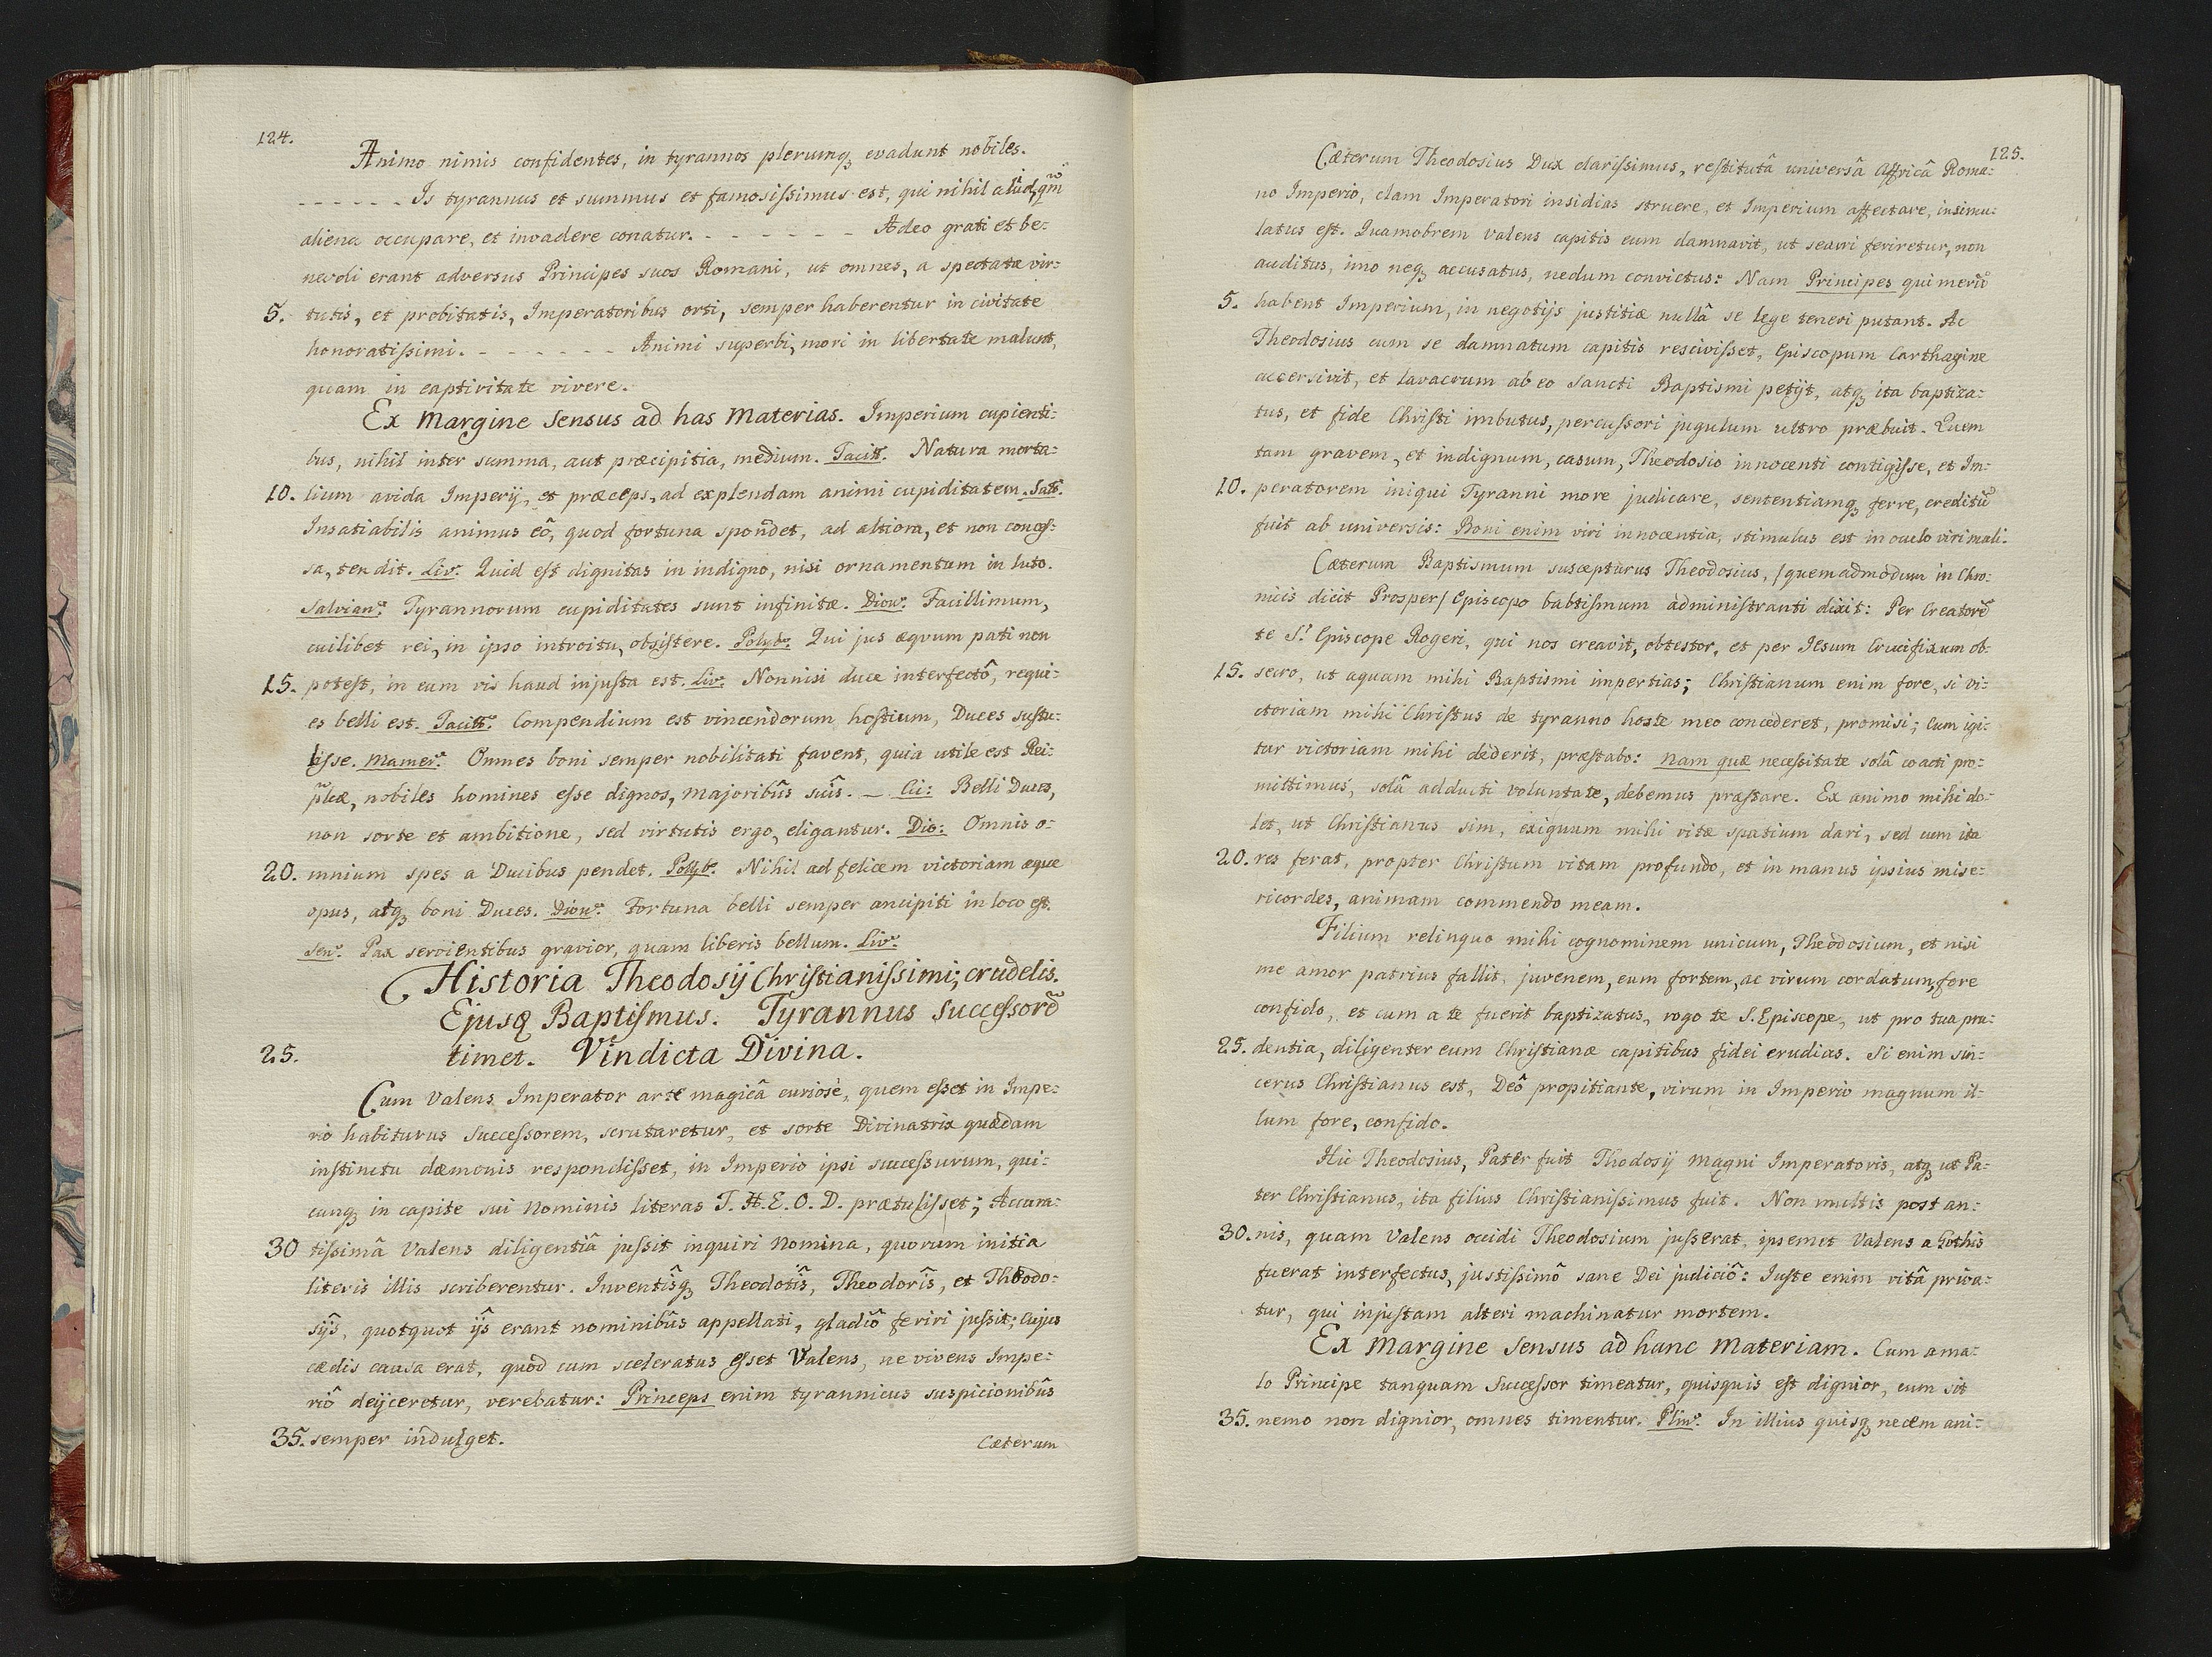 124.
Animo nimis confidentes, in tyrannos plerumq; evadunt nobiles.
- - - - - - Is tyrannus et summus et famosissimus est, qui nihil aliud, qm̃
aliena occupare, et invadere conatur. - - - - - - - Adeo grati et be=
nevoli erant adversus Principes suos Romani, ut omnes, a spectatæ vir=
5. tutis, et probitatis, Imperatoribus orti, semper haberentur in civitate
honoratissimi. - - - - - - - Animi superbi, mori in libertate malunt,
quam in captivitate vivere.
Ex Margine Sensus ad has Materias. Imperium cupienti=
bus, nihil inter summa, aut præcipitia, medium. Tacitꝰ. Natura morta=
10. lium avida Imperij, et præceps, ad explendam animi cupiditatem. Salꝰ.
Insatiabilis animus eô, quod fortuna spondet, ad altiora, et non conces=
sa, tendit. Livꝰ. Quid est dignitas in indigno, nisi ornamentum in luto.
Salvianꝰ. Tyrannorum cupiditates sunt infinitæ. Dionꝰ. Facillimum,
cuilibet rei, in ipso introitu, obsistere. Polybꝰ. Qui jus æqvum pati non
15. potest, in eum vis haud injusta est. Livꝰ. Nonnisi duce interfectô, requi=
es belli est. Tacitꝰ. Compendium est vincendorum hostium, Duces sustu=
lisse. Mamerꝰ. Omnes boni semper nobilitati favent, quia utile est Rei=
pľicæ, nobiles homines esse dignos, majoribûs suîs. — Cic: Belli Duces,
non sorte et ambitione, sed virtutis ergo, eligantur. Dio: Omnis o=
20. mnium spes a Ducibus pendet. Polybꝰ. Nihil ad felicem victoriam æque
opus, atq; boni Duces. Dionꝰ. Fortuna belli semper ancipiti in loco est.
Senꝰ. Pax servientibus gravior, quam liberis bellum. Livꝰ.
Historia Theodosij Christianissimi; crudelis.
Ejusq Baptismus. Tyrannus Successorẽ
25. timet. Vindicta Divina.
Cum Valens Imperator arte magicâ curiosè, quem esset in Impe=
rio habiturus Successorem, scrutaretur, et sorte Divinatrix quædam
instinctu dæmonis respondisset, in Imperio ipsi successurum, qui=
cunq; in capite sui Nominis literas T. H. E. O. D. prætulisset; Accura=
30 tissimâ Valens diligentiâ jussit inquiri Nomina, quorum initia
literis illis scriberentur. Inventîsq; Theodotîs, Theodorîs, et Theodo=
sijs, quotquot ijs erant nominibûs appellati, gladiô feriri jussit; Cujus
cædis causa erat, quod cum sceleratus esset Valens, ne vivens Impe=
riô dejiceretur, verebatur: Princeps enim tyrannicus suspicionibûs
35. semper indulget.
Cæterum
125.
Cæterum Theodosius Dux clarissimus, restitutâ universâ Affricâ Roma=
no Imperio, clam Imperatori insidias struere, et Imperium affectare, insimu=
latus est. Quamobrem Valens capitis eum damnavit, ut securi feriretur, non
auditus, imo neq; accusatus, nedum convictus: Nam Principes qui merũ
5. habent Imperium, in negotijs justitiæ nullâ se lege teneri putant. Ac
Theodosius cum se damnatum capitis rescivisset, Episcopum Carthagine
accersivit, et Lavacrum ab eo Sancti Baptismi petijt, atq; ita baptiza=
tus, et fide Christi imbutus, percussori jugulum ultro præbuit. Quem
tam gravem, et indignum, casum, Theodosio innocenti contigisse, et Im=
10. peratorem iniqui Tyranni more judicare, sententiamq; ferre, creditũ
fuit ab universis: Boni enim viri innocentia, stimulus est in oculo viri mali.
Cæterum Baptismum suscepturus Theodosius, /quemadmodum in Chro=
nicis dicit Prosper/ Episcopo babtismum administranti dixit: Per Creatorẽ
te S.ͭ Episcope Rogeri, qui nos creavit, obtestor, et per Jesum Crucifixum ob=
15. secro, ut aquam mihi Baptismi impertias; Christianum enim fore, si vi=
ctoriam mihi Christus de tyranno hoste meo concederet, promisi; Cum igi=
tur victoriam mihi dederit, præstabo: Nam quæ necessitate solâ coacti pro=
mittimus, solâ adducti voluntate, debemus præstare. Ex animo mihi do=
let, ut Christianus sim, exiguum mihi vitæ spatium dari, sed cum ita
20. res ferat, propter Christum vitam profundo, et in manus ipsius mise=
ricordes, animam commendo meam.
Filium relinquo mihi cognominem unicum, Theodosium, et nisi
me amor patrius fallit, juvenem, eum fortem, ac virum cordatum, fore
confido, et cum a te fuerit baptizatus, rogo te S. Episcope, ut pro tua pru=
25. dentia, diligenter eum Christianæ capitibus fidei erudias. Si enim sin=
cerus Christianus est, Deô propitiante, virum in Imperio magnum il=
lum fore, confido.
Hic Theodosius, Pater fuit Thodosij Magni Imperatoris, atq; ut Pa=
ter Christianus, ita filius Christianissimus fuit. Non multis post an=
30. nis, quam Valens occidi Theodosium jusserat, ipsemet Valens a Gothis
fuerat interfectus, justissimô sane Dei judiciô: Juste enim vitâ priva=
tur, qui injustam alteri machinatur mortem.
Ex Margine Sensus ad hanc Materiam. Cum a ma=
lo Principe tanquam Successor timeatur, quisquis est dignior, cum sit
35. nemo non dignior, omnes timentur. Plinꝰ. In illius quisq; necem ani=